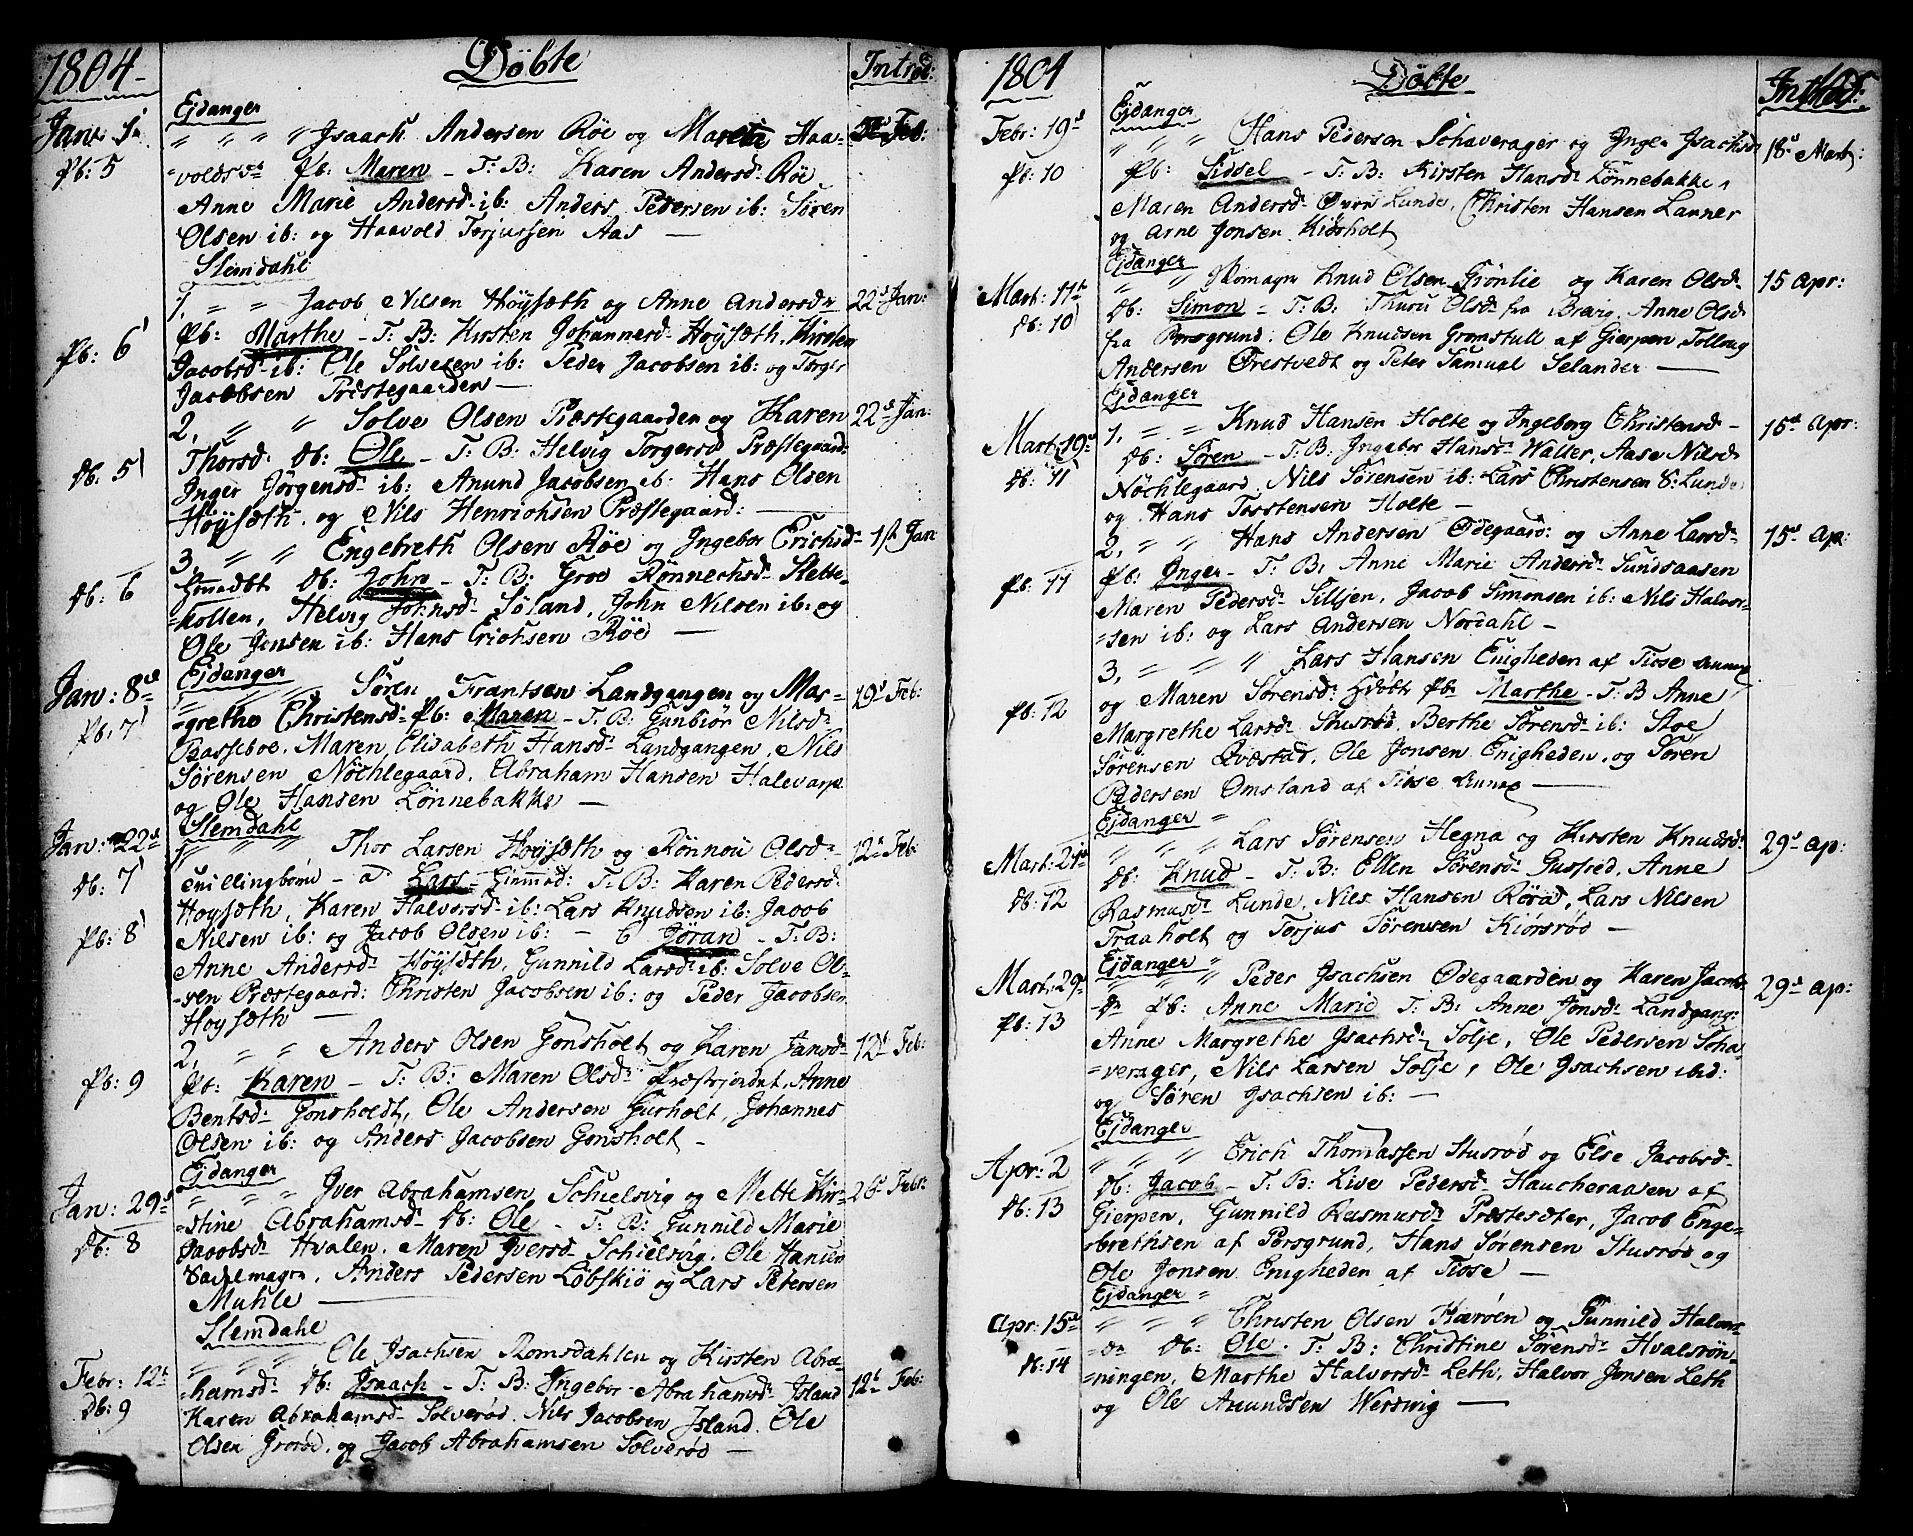 1804
Döbte
Introd:
Ejdanger
Janr: 1.
" " " Isaach Andersen Röe og Marthe Haa-
5te Feb:
Pb: 5
=voldsdr Pb: Maren – T. B: Karen Andersd: Röe
Anne Marie Andersd: ib: Anders Pedersen ib: Sören
Olsen ib: og Haavold Torjussen Aas —
Slemdahl
1, " " Jacob Nilsen Höysæth og Anne Andersdr
22d Jan:
Pb: 6
Pb: Marthe – T. B: Kirsten Johannesd: Höysæth, Kirsten
Jacobsd: ib: Ole Solvesen ib: Peder Jacobsen ib: og Torger
Jacobsen Præstegaarden —
2, " " Solve Olsen Præstegaarden og Karen
22d Jan:
Db: 5
Thorsd: Db: Ole – T. B: Helvig Torgersd Præstegaard:
Inger Jörgensd: ib: Anund Jacobsen ib: Hans Olsen
Höysæth, og Nils Henrichsen Præstegaard: —
3, " " Engebreth Olsen Röe og Ingebor Erichsd:
1st Jan
Db: 6
Hjmedbt Db: John – T. B: Groe Rönnechsd: Slette-
=kollen, Helvig Johnsd: Söland, John Nilsen ib: og
Ole Jonsen ib: Hans Erichsen Röe —
Ejdanger
Jan: 8de
" " " Sören Frantsen Landgangen og Mar-
19d Feb:
Pb: 7
=grethe Christensd: Pb: Maren – T. B: Gunbiör Nilsd:
Basseboe, Maren Elisabeth Hansd: Landgangen, Nils
Sörensen Nöchlegaard, Abraham Hansen Halevarp
og Ole Hansen Lönnebakke —
Slemdahl
Jan: 22d
" " " Thor Larsen Höysæth og Rönnou Olsd:
12t Feb:
Db: 7
tvillingbörn – a Lars – Hiemmed: T. B: Karen Pedersd:
Höysæth, Karen Halvorsd: ib: Lars Knudsen ib: Jacob
Pb: 8
Nilsen ib: og Jacob Olsen ib: – b Jöran – T. B:
Anne Andersd: Höysæth, Gunnild Larsd: ib: Solve Ol-
=sen Præstegaard: Christen Jacobsen ib: og Peder Jacobsen
Höysæth —
2, " " Anders Olsen Gonsholt og Karen Jansd:
12t Feb:
Pb: 9
Pb: Karen – T. B: Maren Olsd: Præstejordet, Anne
Bentsd: Gonsholdt, Ole Andersen Gurholt, Johannes
Olsen ib: og Anders Jacobsen Gonsholt –
Ejdanger
Jan: 29d
" " " Iver Abrahamsen Schielsvig og Mette Kir-
26d Febr:
Db: 8
=stine Abrahamsd: Db: Ole – T. B: Gunnild Marie
Jacobsd: Hvalen, Maren Iversd: Schielsvig, Ole Hansen
Sadelmager, Anders Pedersen Löbskiö og Lars Petersen
Muhle —
Slemdahl
Febr: 12t
" " " Ole Isachsen Romsdahlen og Kirsten Abra-
12t Feb:
Db: 9
=hamsd: Db: Isaach – T. B: Ingebor Abrahamsd: Island
Karen Abrahamsd: Solveröd, Nils Jacobsen Island, Ole
Olsen Grøröd, og Jacob Abrahamsen Solveröd —
1804
Döbte
Introd:
Ejdanger
Febr: 19d
" " " Hans Pedersen Schaverager og Inger Isachsd:
18d Mart:
Pb: 10
Pb: Sidsel – T. B: Kirsten Hansd: Lönnebakke,
Maren Andersd: Övre Lunde, Christen Hansen Lanner
og Arne Jonsen Kiörholt
Ejdanger
Mart: 11t
" " Skomager Knud Olsen Grönlie og Karen Olsd:
15 Apr:
Db: 10
Db: Simon – T. B: Thuru Olsd: fra Brevig, Anne Olsd:
fra Porsgrund, Ole Knudsen Gromstull af Gierpen, Tolloug
Andersen Örestvedt og Peter Samual Selander —
Ejdanger
Mart: 19d
1, " " Knud Hansen Holte og Ingeborg Christensd –
15d Apr:
Db: 11
Db: Sören – T. B: Ingebor Hansd: Waller, Aase Nilsd:
Nöchlegaard, Nils Sörensen ib: Lars Christensen S: Lunde
og Hans Torstensen Holte –
2, " " Hans Andersen Ödegaard: og Anne Larsd:
15d Ap:
Pb: 11
Pb: Inger – T. B: Anne Marie Andersd: Sundsaasen
Maren Pedersd: Silljen, Jacob Simonsen ib: Nils Halvor-
=sen ib: og Lars Andersen Nordahl –
3, " " " Lars Hansen Enigheden af Tiose Annex
Pb: 12
og Maren Sörensd: Hjdöbt Pb: Marthe – T. B: Anne
Margrethe Larsd: Stusröd, Berthe Sörensd: ib: Stoe
Sörensen Qvæstad, Ole Jonsen Enigheden, og Sören
Pedersen Omsland af Tiose Annex —
Ejdanger
Mart: 24de
" " " Lars Sörensen Hegna og Kirsten Knudsd:
29d Ap:
Db: 12
Db: Knud – T. B: Ellen Sörensd: Gusfred, Anne
Rasmusd: Lunde, Nils Hansen Röraa, Lars Nilsen
Traaholt og Torjus Sörensen Kiörsröd —
Ejdanger
Mart: 29de
" " Peder Isachsen Ödegaarden og Karen Jacobs-
29d Ap:
Pb: 13
=dr Pb: Anne Marie T. B: Anne Jonsd: Landgang:
Anne Margrethe Isachsd: Solje, Ole Pedersen Scha-
=verager, Nils Larsen Solje, Ole Isachsen ibid:
og Sören Isachsen ib: —
Ejdanger
Apr: 2
" " " Erich Thomassen Stusröd og Else Jacobsd:
Db: 13
Db: Jacob – T. B: Live Pedersd: Haucheraasen af
Gierpen, Gunnild Rasmusd: Præstesæter, Jacob Enge-
=brethsen af Porsgrund, Hans Sörensen Stusröd og
Ole Jonsen Enigheden af Tiose —
Ejdanger
Apr: 15de
" " " Christen Olsen Kærröen og Gunnild Halvors-
Db: 14
=dr Db: Ole. T. B: Christine Sörensd: Hvalsrön-
=ningen, Marthe Halvorsd: Leth, Halvor Jonsen Leth
og Ole Amundsen Wersvig —